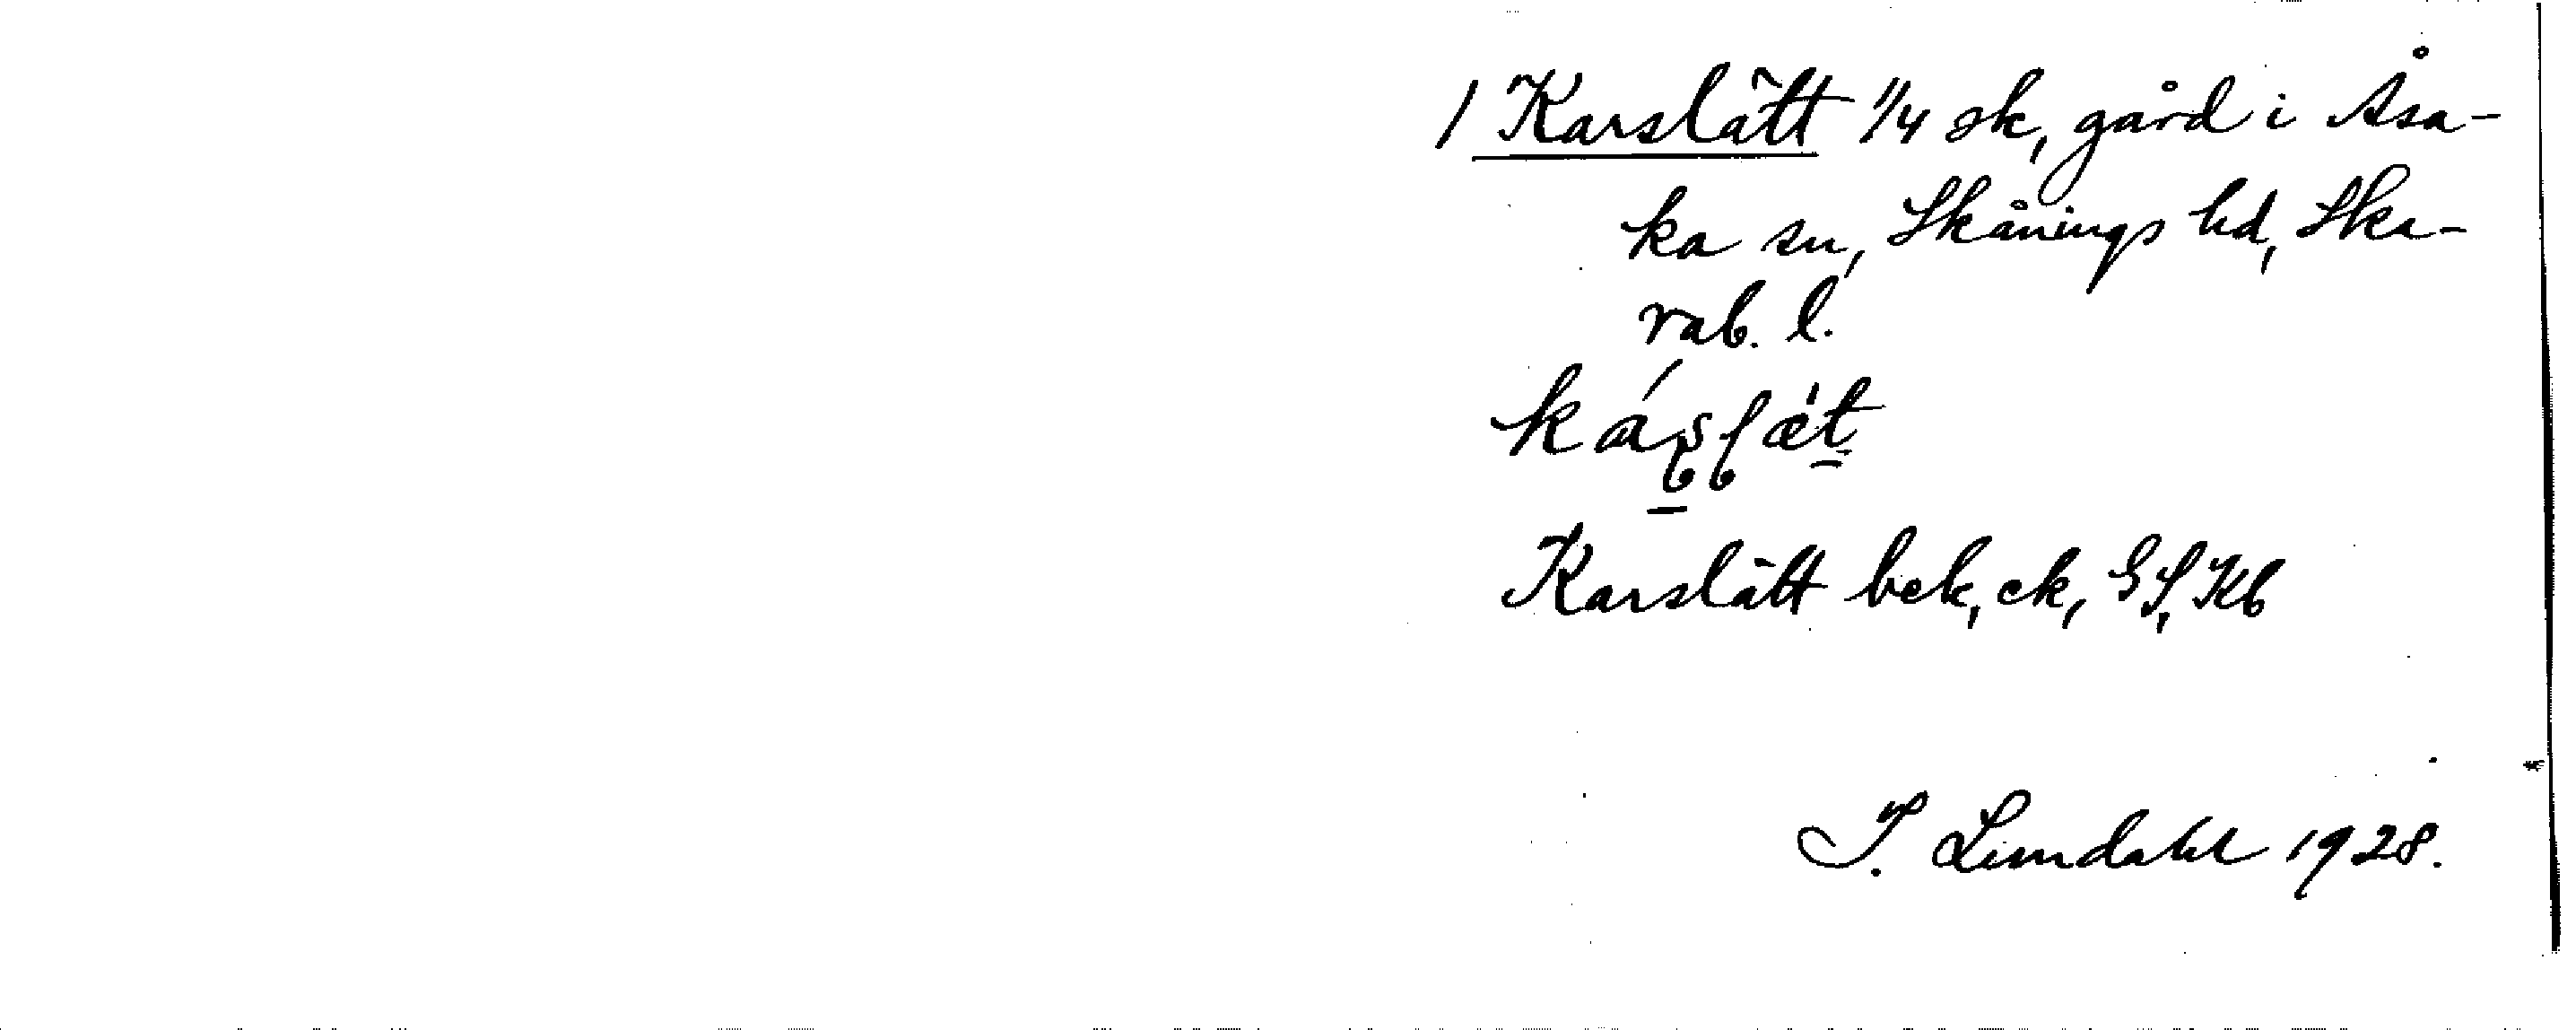 / Karslätt 1/4 sk, gård i Åsa-
ka sn, Skånings hd, Ska-
rab. l.
Karslätt bek, ek, GS, Kb
I. Lindahl 1928.